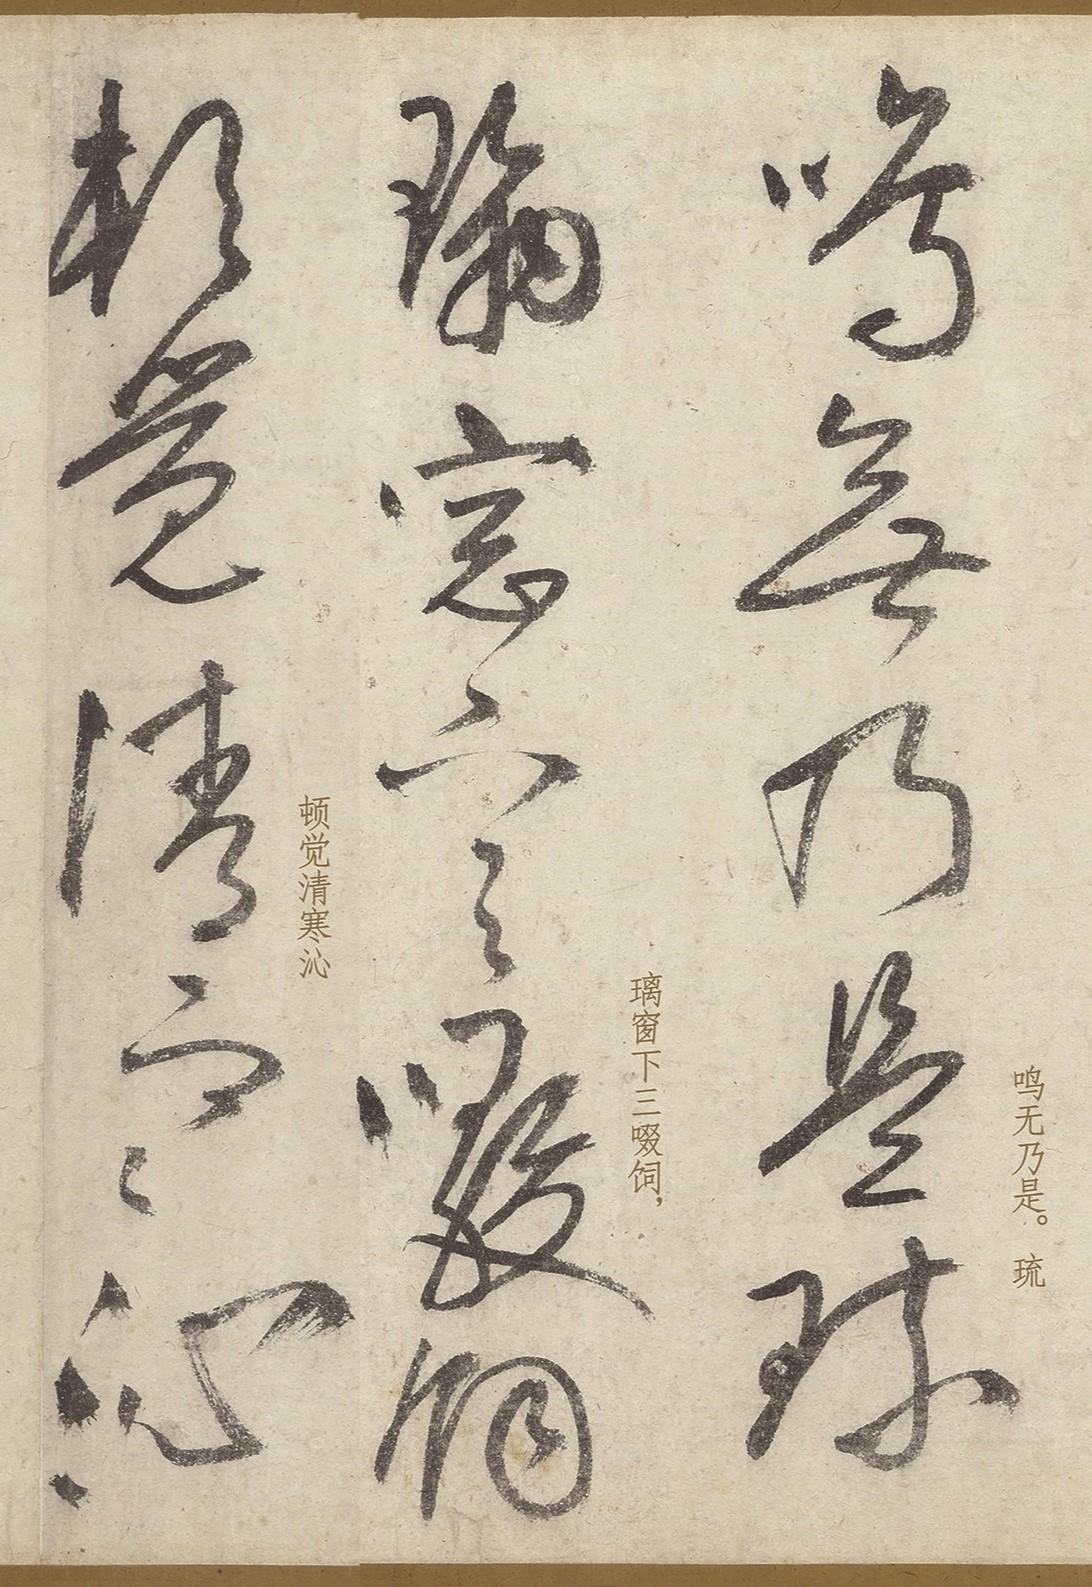 鳴無乃是琉
鸣无乃是。 琉
璃窓下三啜飼
璃窗下三啜饲，
頓覺清寒沁
顿觉清寒沁